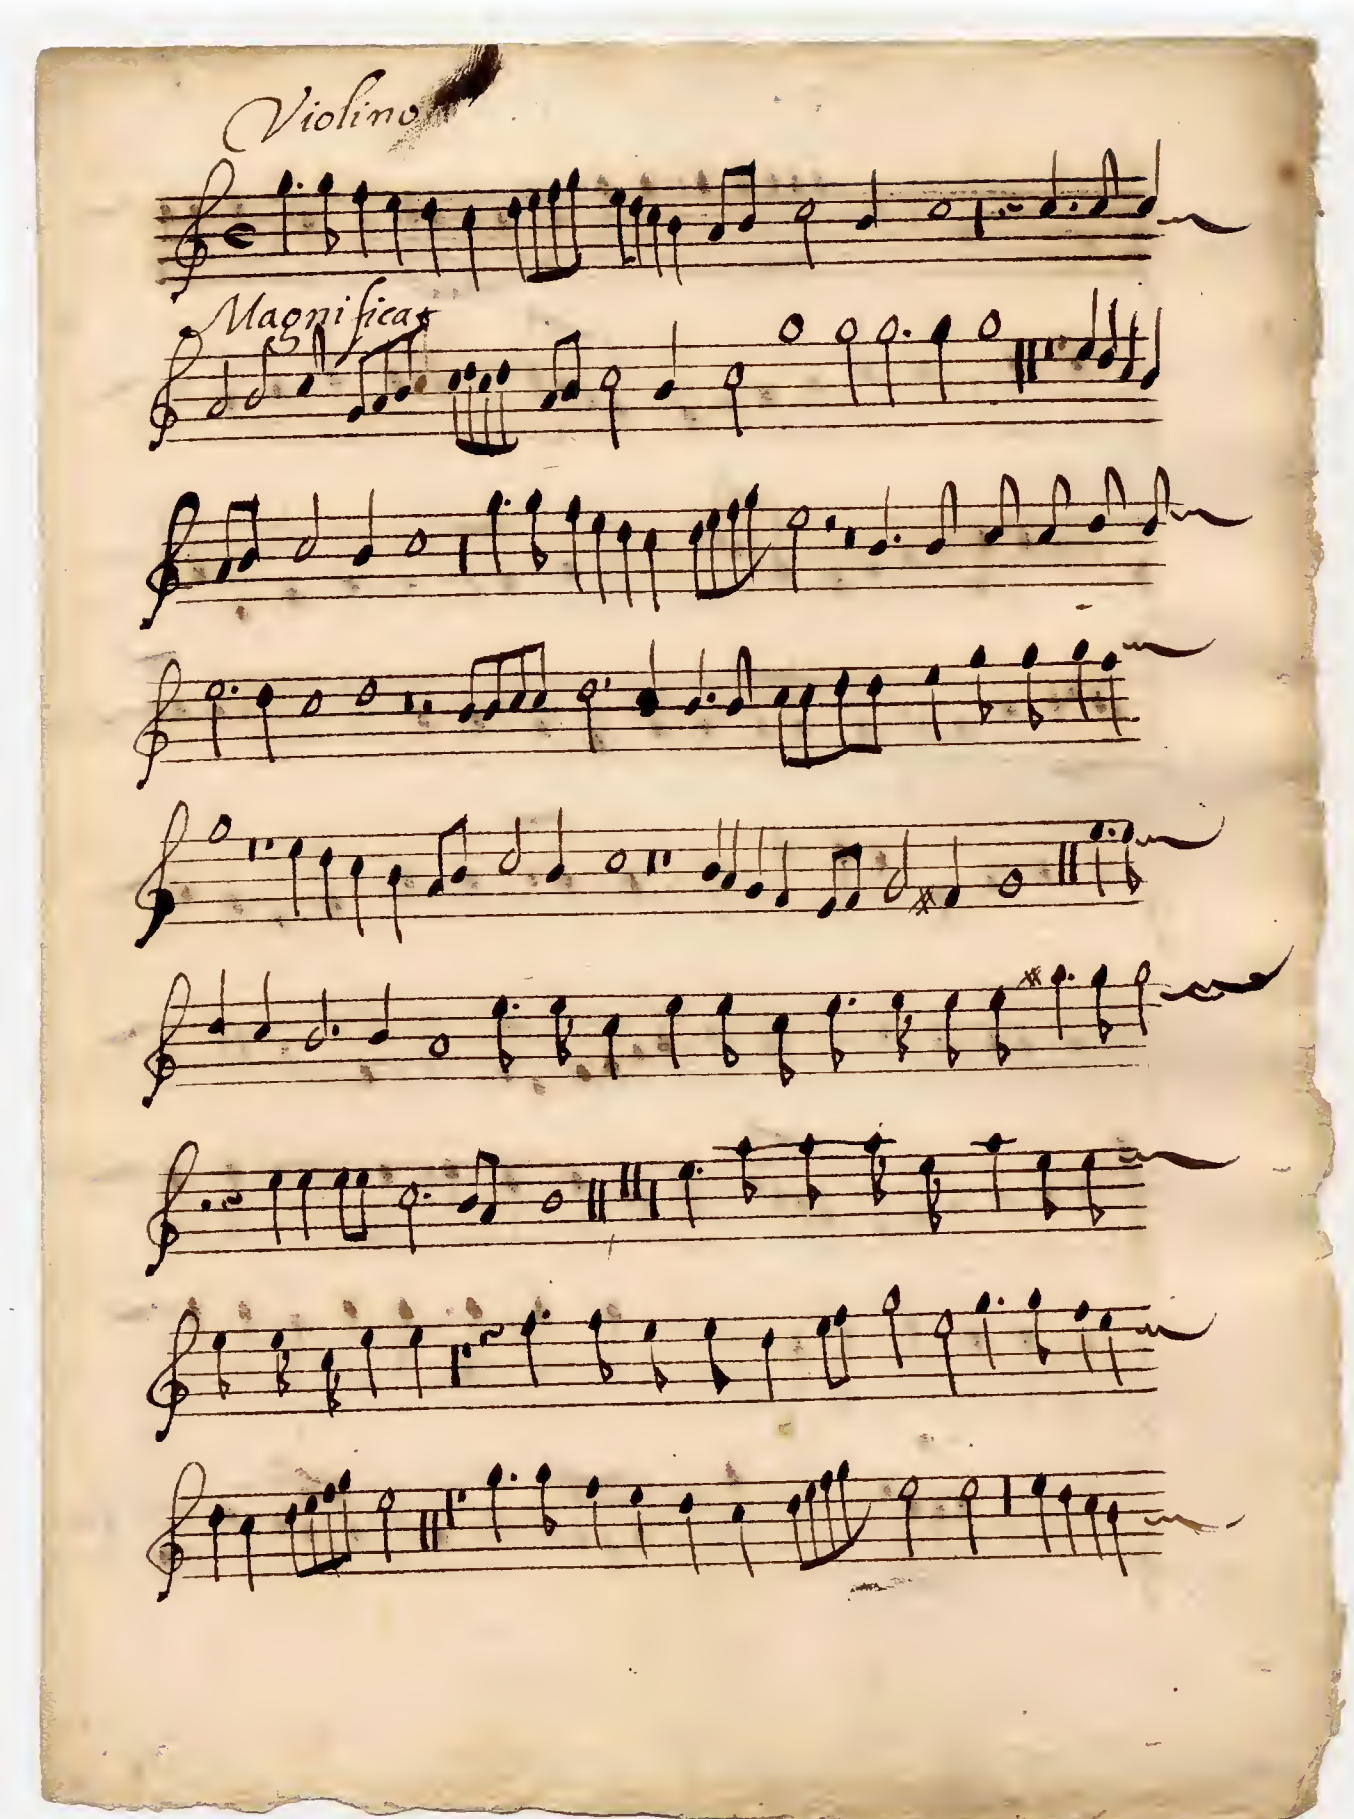 Violino
Magnificat